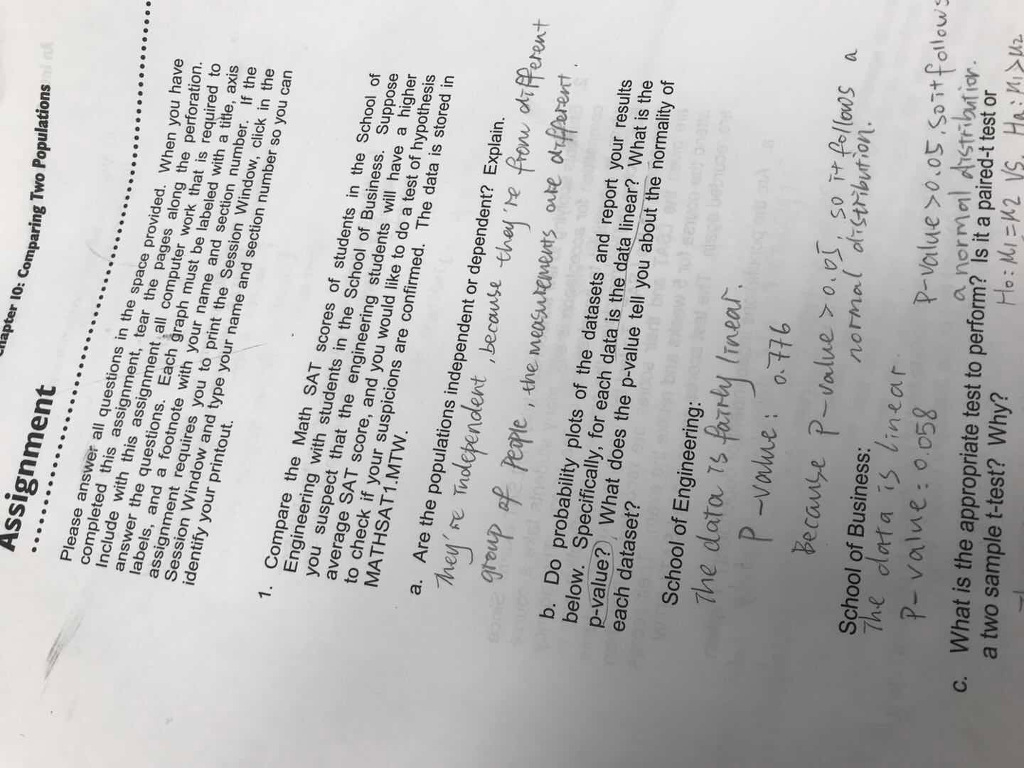 Chapter 10: Comparing Two Populations
Assignment
Please answer all questions in the space provided. When you have
completed this assignment, tear the pages along the perforation.
Include with this assignment, all computer work that is required to
answer the questions. Each graph must be labeled with a title, axis
labels, and a footnote with your name and section number. If the
assignment requires you to print the Session Window, click in the
Session Window and type your name and section number so you can
identify your printout.
1. Compare the Math SAT scores of students in the School of
Engineering with students in the School of Business. Suppose
you suspect that the engineering students will have a higher
average SAT score, and you would like to do a test of hypothesis
to check if your suspicions are confirmed. The data is stored in
MATHSAT1.MTW.
a. Are the populations independent or dependent? Explain.
They're independent, because they're from different
group of people, the measurements are different.
b. Do probability plots of the datasets and report your results
below. Specifically, for each data is the data linear? What is the
p-value? What does the p-value tell you about the normality of
each dataset?
School of Engineering:
The data is fairly linear.
P-value: 0.776
Because P-value > 0.05, so it follows a
normal distribution.
School of Business:
The data is linear
P-value: 0.058 P-value > 0.05. So it follows
a normal distribution.
c. What is the appropriate test to perform? Is it a paired-t test or
a two sample t-test? Why? H0: M1 = M2 VS. Ha: M1 > M2